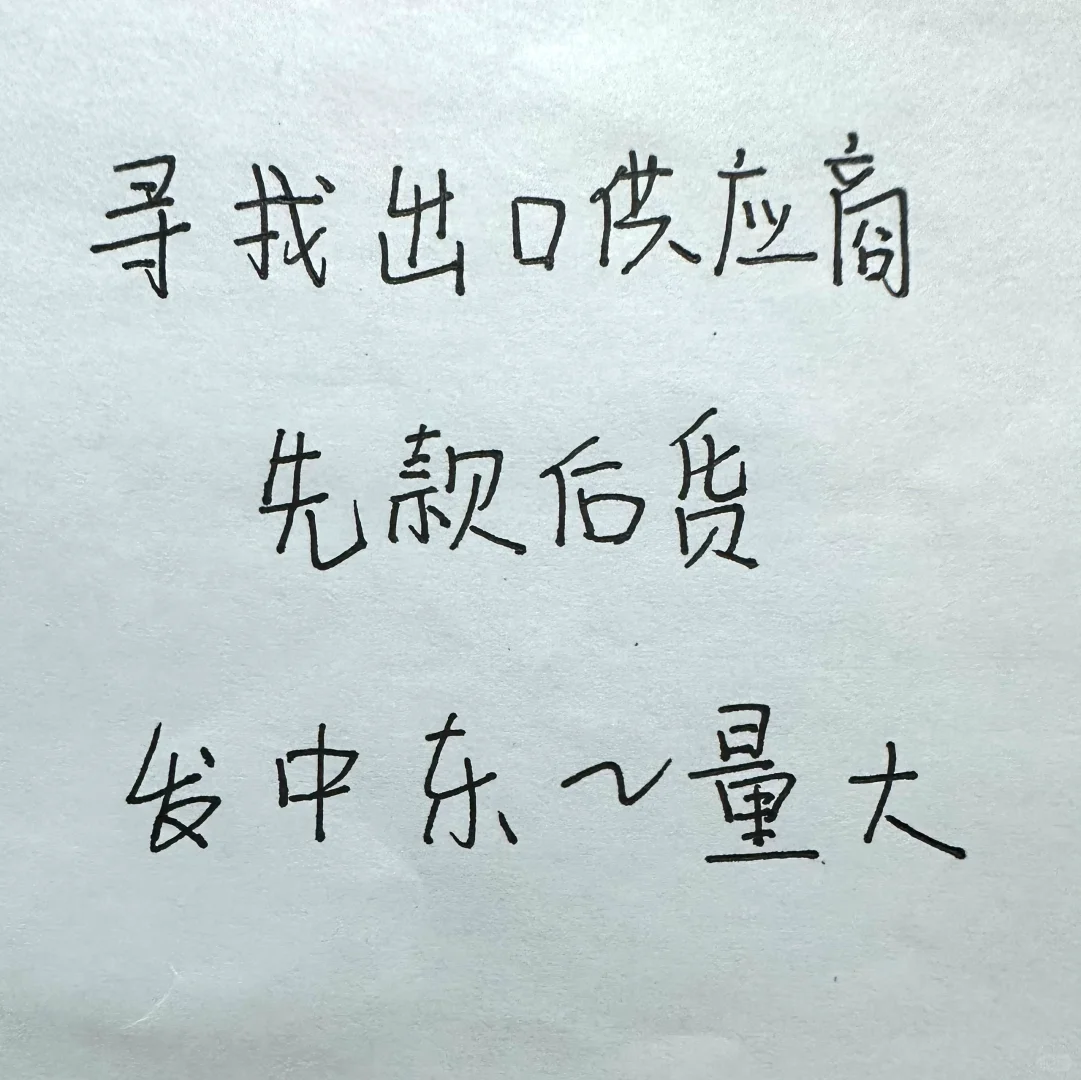 寻找出口供应商
先款后货
发中东~量大